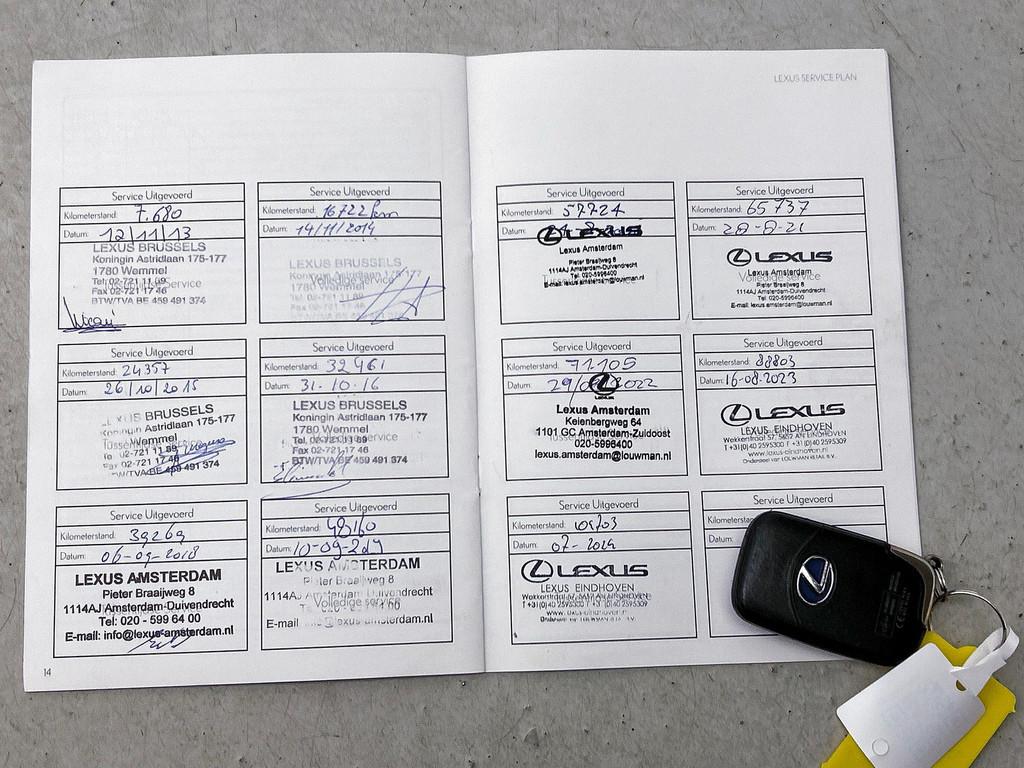 LEXUS SERVICE PLAN
Service Uitgevoerd
Kilometerstand: 7.680
Datum: 12/11/13
LEXUS BRUSSELS
Koningin Astridlaan 175-177
1780 Wemmel
Tel: 02-721 11 89
Fax 02-721 17 46
BTW/TVA BE 459 491 374
Service Uitgevoerd
Kilometerstand: 16722 km
Datum: 14/11/2014
LEXUS BRUSSELS
Koningin Astridlaan 175-177
1780 Wemmel
Service Uitgevoerd
Kilometerstand: 24357
Datum: 26/10/2015
LEXUS BRUSSELS
Koningin Astridlaan 175-177
Wemmel
02-721 11 89
Fax 02-721 17 46
BTW/TVA BE 459 491 374
Service Uitgevoerd
Kilometerstand: 32461
Datum: 31-10-16
LEXUS BRUSSELS
Koningin Astridlaan 175-177
1780 Wemmel
Tel. 02-721 11 89
Fax 02-721 17 46
BTW/TVA BE 459 491 374
Service Uitgevoerd
Kilometerstand: 39269
Datum: 06-09-2018
LEXUS AMSTERDAM
Pieter Braaijweg 8
1114AJ Amsterdam-Duivendrecht
Tel: 020 - 599 64 00
E-mail: info@lexus-amsterdam.nl
Service Uitgevoerd
Kilometerstand: 48160
Datum: 10-09-2019
LEXUS AMSTERDAM
Pieter Braaijweg 8
1114AJ Amsterdam-Duivendrecht
Volledige service
E-mail @lexus-amsterdam.nl
14
Service Uitgevoerd
Kilometerstand: 57724
Datum:
LEXUS
Lexus Amsterdam
Pieter Braaijweg 8
1114AJ Amsterdam-Duivendrecht
Tel. 020-5996400
E-mail: lexus.amsterdam@louwman.nl
Service Uitgevoerd
Kilometerstand: 65737
Datum:
LEXUS
Volledige service
Lexus Amsterdam
Pieter Braaijweg 8
1114AJ Amsterdam-Duivendrecht
Tel. 020-5996400
E-mail: lexus.amsterdam@louwman.nl
Service Uitgevoerd
Kilometerstand: 71105
Datum:
Lexus Amsterdam
Keienbergweg 64
1101 GC Amsterdam-Zuidoost
020-5996400
lexus.amsterdam@louwman.nl
Service Uitgevoerd
Kilometerstand: 88803
Datum: 16-08-2023
LEXUS
LEXUS EINDHOVEN
Wekkerstraat 57, 5652 AN EINDHOVEN
T +31 (0) 40 2595300 F +31 (0) 40 2595309
www.lexus-eindhoven.nl
Onderdeel van LOUWMAN RETAIL B.V.
Service Uitgevoerd
Kilometerstand:
Datum: 07-2024
LEXUS
LEXUS EINDHOVEN
Wekkerstraat 57, 5652 AN EINDHOVEN
T +31 (0) 40 2595300 F +31 (0) 40 2595309
www.lexus-eindhoven.nl
Service Uitgevoerd
Kilometerstand:
Datum: